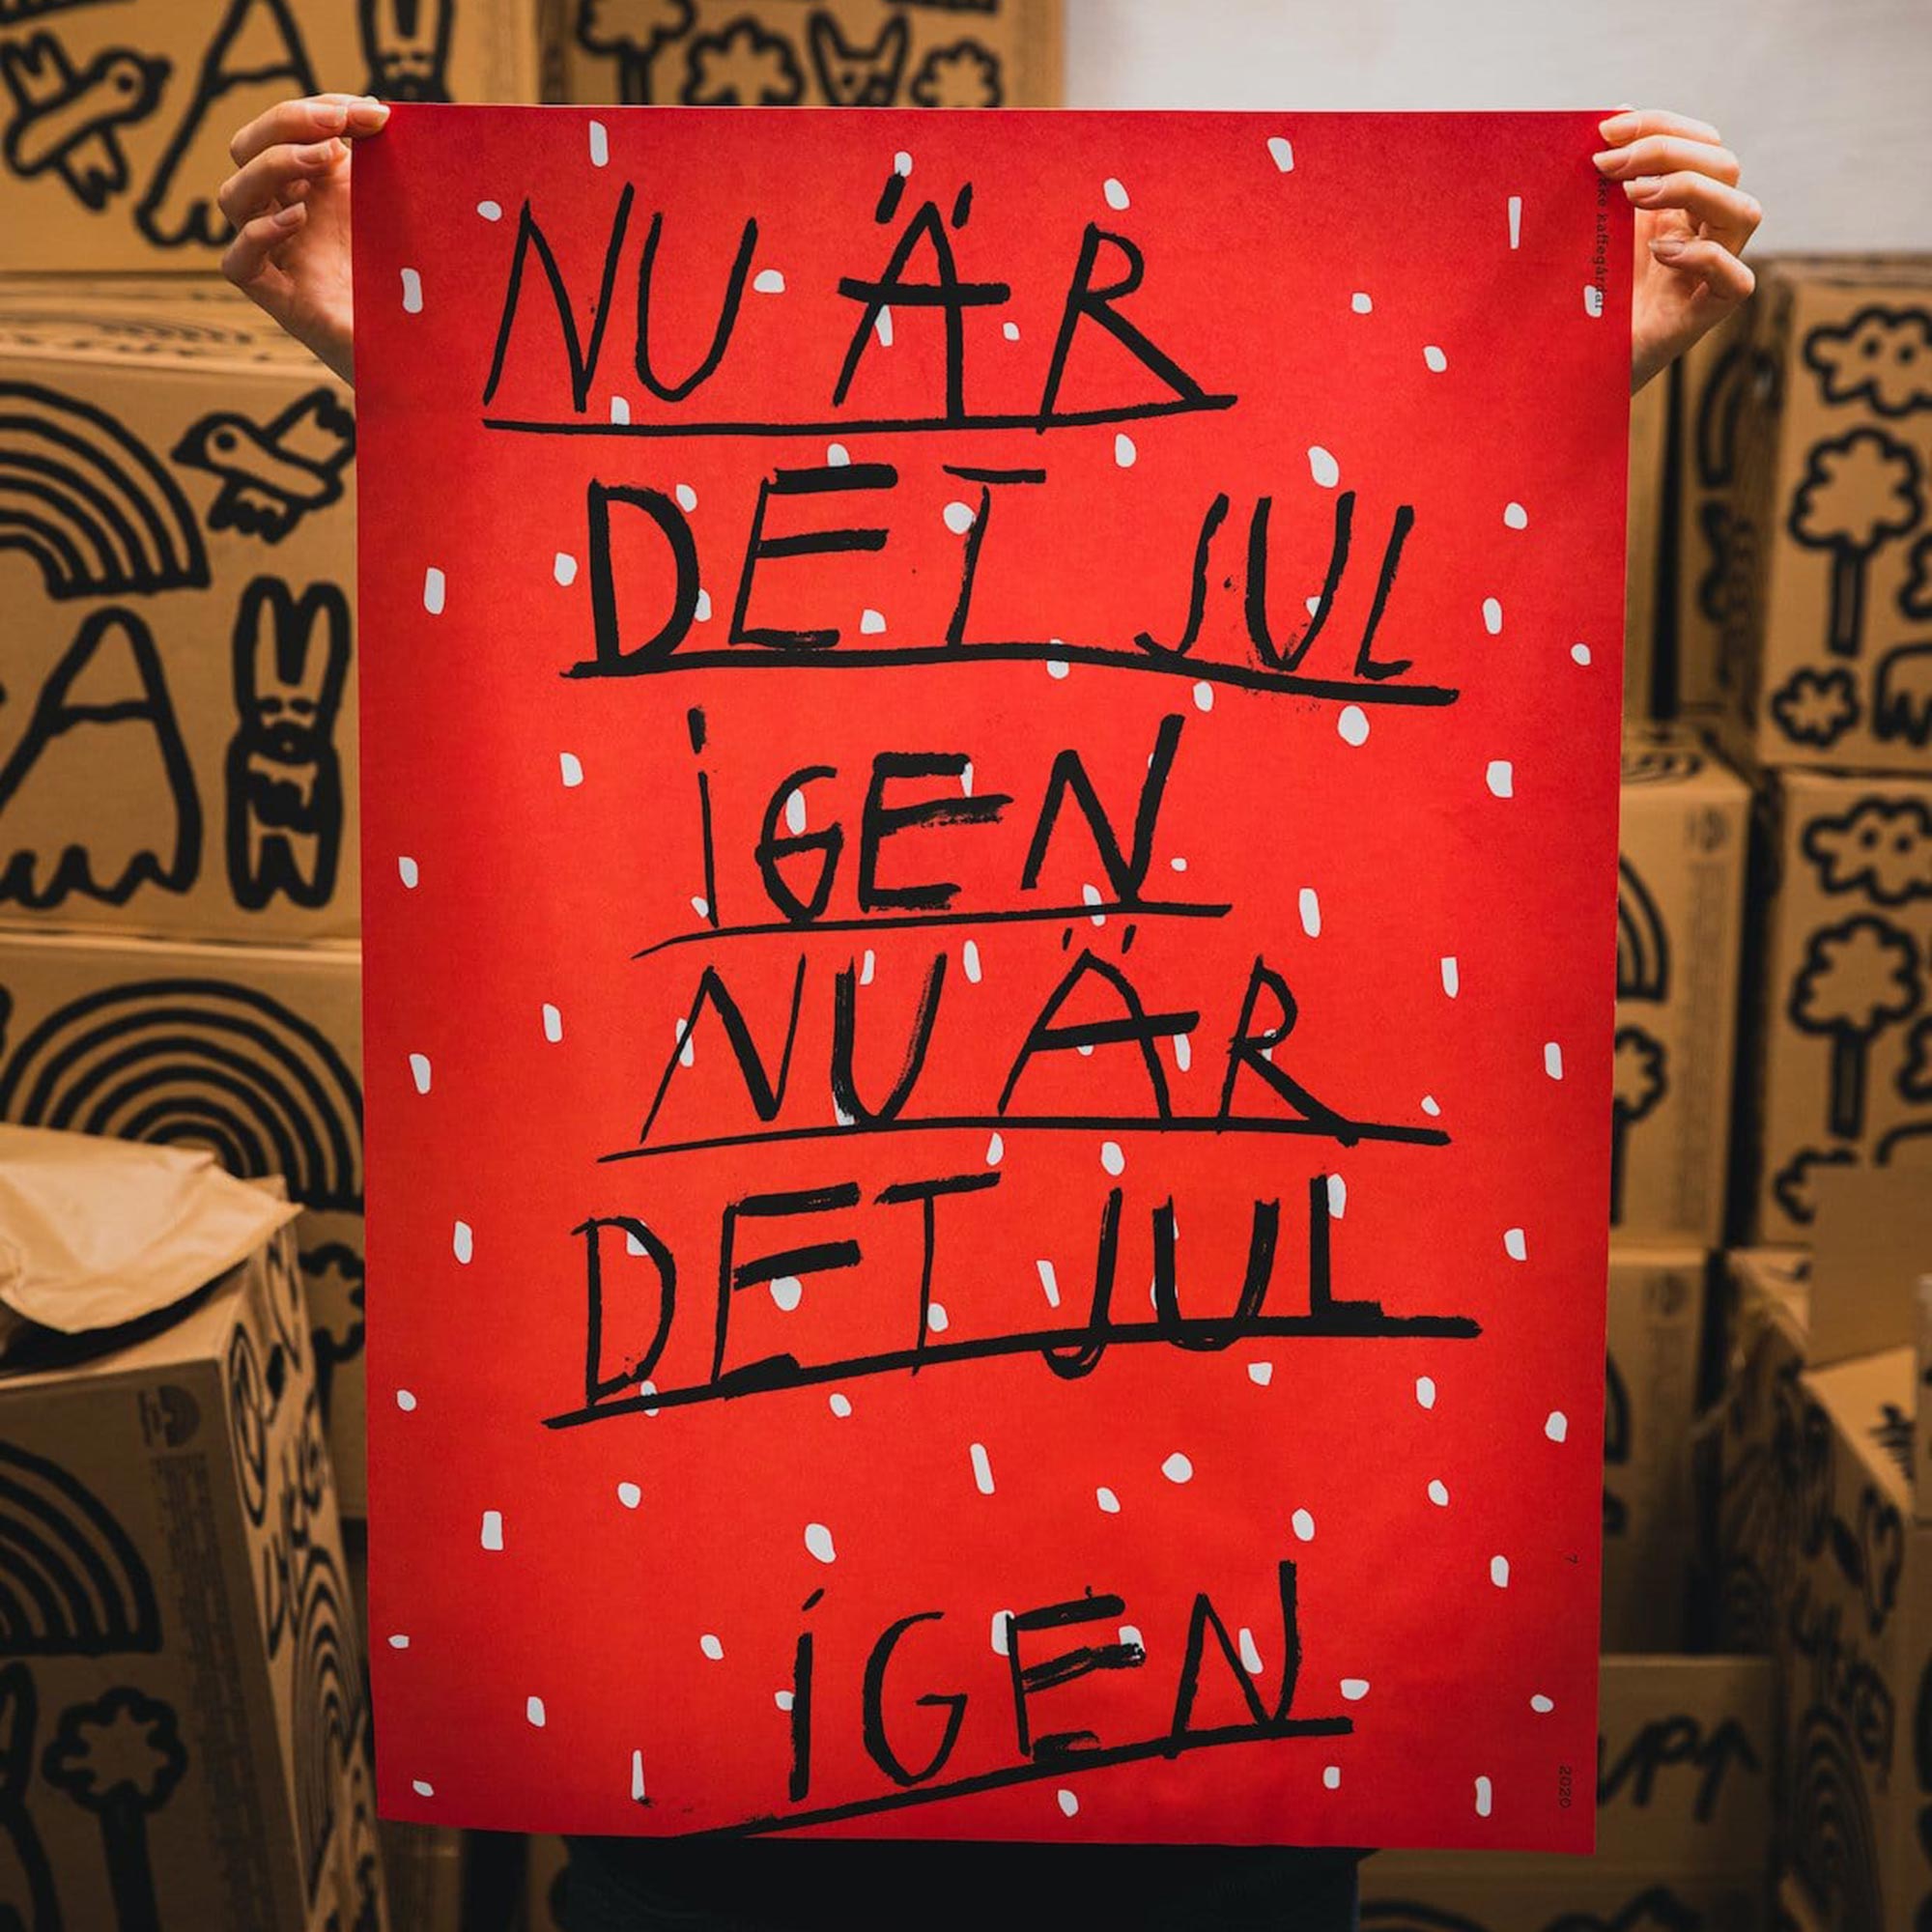 NU ÄR
DET JUL
iGEN
NU ÄR
DET JUL
iGEN
kaffegårdar
7
2020